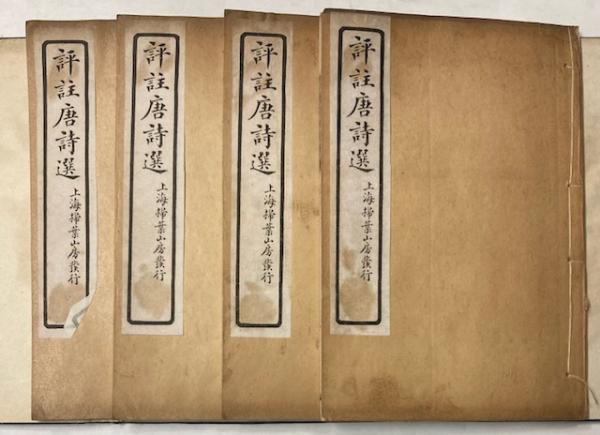 評註唐詩選
上海掃葉山房發行
評註唐詩選
上海掃葉山房發行
評註唐詩選
上海掃葉山房發行
評註唐詩選
上海掃葉山房發行